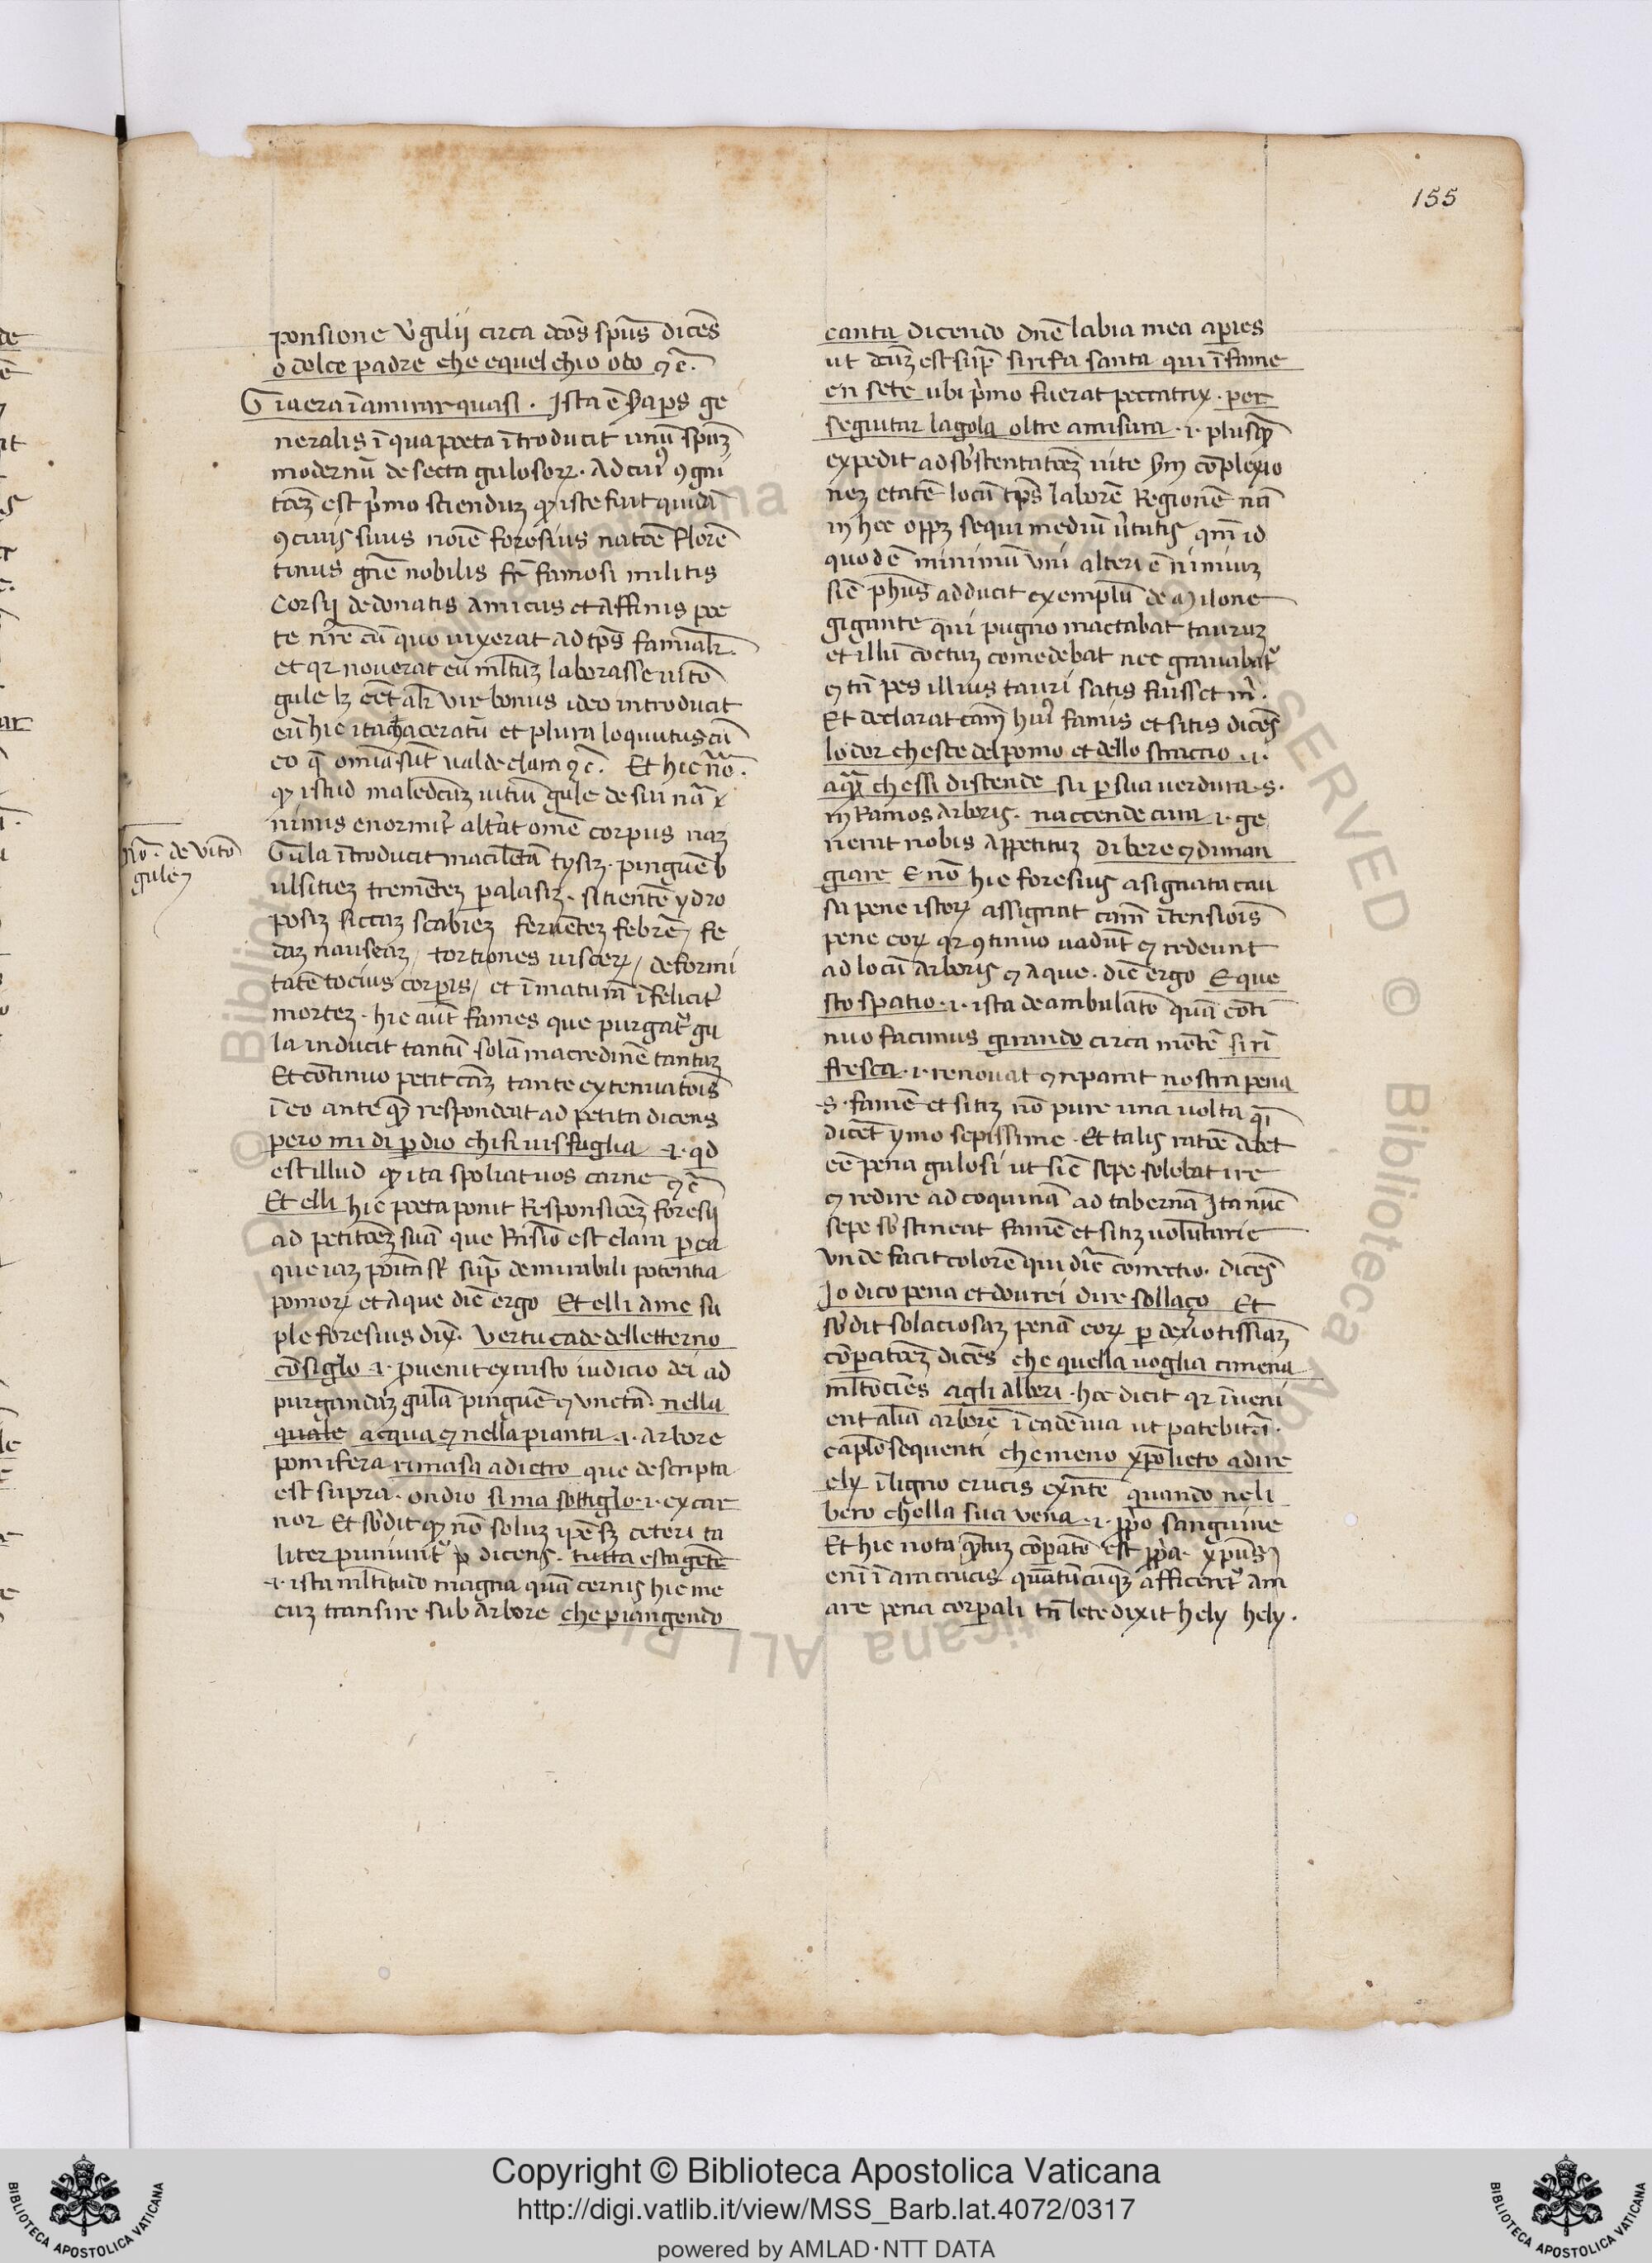 155
ponsione v̓gilij circa dcōs spūs dicēs
o dolce padre che equel chio odo ⁊c̄.
Giaera ī amirar quasi. Ista ē ßa ps ge
neralis ī qua poeta ītroducit unū spūꝫ
modernū de secta gulosoꝝ. Ad cuiꝰ ꝯgni
tōeꝫ est p̓mo scienduꝫ ꝙ iste fuit quidā
ꝯcivis suus noīe foresius natōe Florē
tinus gn̄e nobilis fr̄ famosi militis
Corsij de donatis amicus et affinis poe
te nr̄e cū quo vixerat ad tp̄s familiar̄.
et qꝛ noverat eū ml̄tuꝫ laborasse vitō
gule lꝫ eēt al̄r vir bonus ideo introducit
eū hic ita maceratū et plura loquutus cū
eo q̄ omīa sūt valde clara ⁊c̄. Et hic nō.
ꝙ istud maledc̄uꝫ vitiū gule de sui nā
nimis enormit̓ alt̓at om̄e corpus naꝫ
nō. de vitō
gule
Gula ītroducit macilētā tysiꝫ. pinguē
ulsitieꝫ tremēteꝫ paralasiꝫ. sitientē ydro
posiꝫ siccaꝫ scabieꝫ fervēteꝫ febrē / fe
daꝫ nauseaꝫ / tortiones visceꝝ / deformi
tatē tocius corpis / et īmaturā īfelicit̓
morteꝫ. hic aut̄ fames que purgat̓ gu
la inducit tantū solā macredinē tantaꝫ
Et cōtinuo petit cāꝫ tante extenuatōis
ī eo ante qꝫ respondeat ad petita dicens
pero mi di p dio chi si vi sfuglia .i. qd
est illud ꝙ ita spoliat vos carne ⁊c̄
Et elli hic poeta ponit Responsiōeꝫ foresij
ad petitōeꝫ suā que Rn̄sio est clara p ea
que iaꝫ poīta sūt sup̄ de mirabili potentia
pomoꝝ et aque dīc̄ ergo Et elli ame su
ple foresius dix̓. Vertu cade delletterno
cōsiglo .i. pvenit ex iusto iudicio dei ad
purgandāꝫ gulā pinguē ⁊ unctā. nella
quale acqua ⁊ nella pianta .i. arbore
pomifera rimasa adietro que descripta
est supra. ondio si ma sottiglo .i. excar
nor Et sb̓dit ꝙ nō soluꝫ ip̄e sꝫ ceteri ta
liter puniunt̓ p̄ dicens. tutta esta gēte
.i. ista ml̄titudo magna quā cernis hic me
cuꝫ transire sub arbore che piangendo
canta dicendo dn̄e labia mea aperies
ut dc̄uꝫ est sup̄ si rifa santa qui ī fame
en sete ubi p̓mo fuerat peccatrix. per
seguitar la gola oltre amisura .i. plusqꝫ
expedit ad sb̓stentatōeꝫ vite ßm cōplexio
neꝫ etatē locū tp̄s laborē Regionē nā
in hoc oppꝫ sequi mediū v̓tutis qm̄ id
quod ē minimū uni alteri ē nimiuꝫ
sic̄ ph̄us adducit exemplū de milone
gigante qui pugno mactabat tauruꝫ
et illū coctuꝫ comedebat nec gravabat̓
⁊ tn̄ pes illius tauri satis fuisset m̄.
Et declarat cām huiꝰ famis et sitis dicēs
lodor chesce del pomo et dello straccio .i.
aqua chessi distende su p sua verdura .s.
in Ramos arboris. naccende cura .i. ge
nerat nobis appetituꝫ di bere ⁊ di man
giare E nō hic foresius asignata cau
sa pene istoꝝ assignat cām ītensiois
pene eoꝝ qꝛ ꝯtinuo vadūt ⁊ redeunt
ad locū arboris ⁊ aque. dīc̄ ergo E que
sto spatio .i. ista deambulatō quā cōti
nuo facimus girando circa mōtē si ri
fresca .i. renovat ⁊ reparat nostra pena
.s. famē et sitiꝫ nō pure una volta q̄i
dicēt ymo sepissime. Et talis ratōe debet
eē pena gulosi ut sic̄ sepe solebat ire
⁊ redire ad coquinā ad tabernā Ita nūc
sepe sb̓stineat famē et sitiꝫ volūtarie
unde facit colorē qui dīc̄ correctio. dicēs
Io dico pena et dourei dire sollaço Et
sb̓dit solaciosaꝫ penā eoꝝ p devotissimaꝫ
cōpatōeꝫ dicēs che quella voglia cimena
ml̄tociēs agli alberi. hoc dicit qꝛ īveni
ent aliā arborē ī eadē via ut patebit ī.
caplo sequenti che meno xp̄o lieto adire
ely ī ligno crucis exn̄te quando ne li
bero chella sua vena .i. pp̓o sanguine
Et hic nota qꝫtuꝫ cōpatō est pp̓a. xp̄us
eni ī ara crucis quātūcuqꝫ afficeret̓ am
are pena corporali tn̄ lete dixit hely hely.
Copyright © Biblioteca Apostolica Vaticana
http://digi.vatlib.it/view/MSS_Barb.lat.4072/0317
powered by AMLAD·NTT DATA
BIBLIOTECA APOSTOLICA VATICANA
BIBLIOTECA APOSTOLICA VATICANA